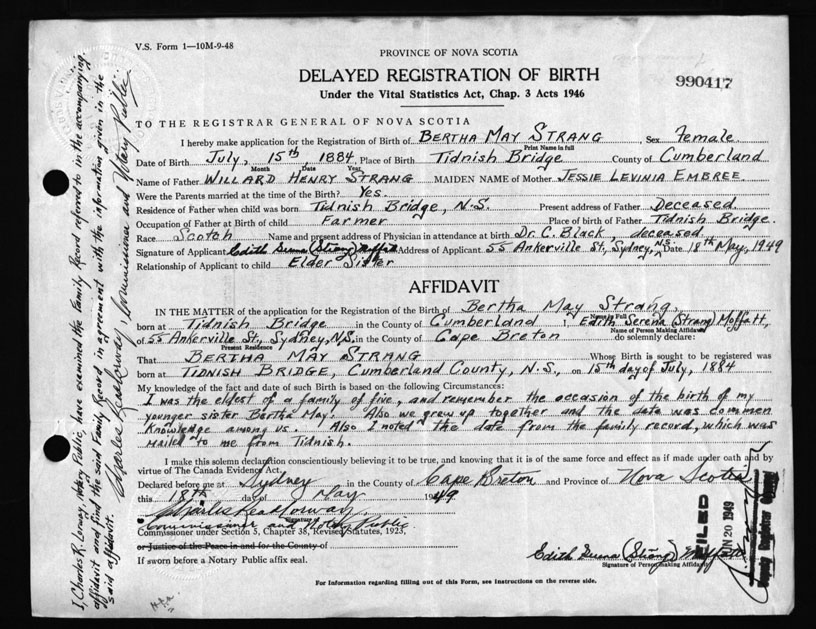 V.S. Form 1—10M-9-48
PROVINCE OF NOVA SCOTIA
DELAYED REGISTRATION OF BIRTH
Under the Vital Statistics Act, Chap. 3 Acts 1946
990417
TO THE REGISTRAR GENERAL OF NOVA SCOTIA
I hereby make application for the Registration of Birth of BERTHA MAY STRANG, Sex Female
Print Name in full
Date of Birth July, 15th, 1884, Place of Birth Tidnish Bridge County of Cumberland
Month Date Year
Name of Father WILLARD HENRY STRANG MAIDEN NAME of Mother JESSIE LEVINIA EMBREE.
Were the Parents married at time of the Birth? Yes.
Residence of Father when child was born Tidnish Bridge, N.S. Present address of Father Deceased
Occupation of Father at Birth of child Farmer Place of birth of Father Tidnish Bridge.
Race Scotch Name and present address of Physician in attendance at birth Dr. C. Black, deceased
Signature of Applicant Edith Serena (Strang) Moffatt Address of Applicant 55 Ankerville St., Sydney, N.S. Date 18th May, 1949
Relationship of Applicant to child Elder Sister
AFFIDAVIT
IN THE MATTER of the application for Registration of the Birth of Bertha May Strang,
born at Tidnish Bridge in the County of Cumberland, I, Edith Serena (Strang) Moffatt,
Name in Full
Name of Person Making Affidavit
of 55 Ankerville St., Sydney, N.S, in the County of Cape Breton do solemnly declare:
Present Residence
That BERTHA MAY STRANG Whose Birth is sought to be registered was
born at TIDNISH BRIDGE, Cumberland County, N.S., on 15th day of July, 1884
My knowledge of the fact and date of such Birth is based on the following Circumstances:
I was the eldest of a family of five, and remember the occasion of the birth of my
younger sister Bertha May. Also we grew up together and the date was common
knowledge among us. Also I noted the date from the family record, which was
mailed to me from Tidnish.
I make this solemn declaration conscientiously believing it to be true, and knowing that it is of the same force and effect as if made under oath and by
virtue of The Canada Evidence Act.
Declared before me at Sydney in the County of Cape Breton and Province of Nova Scotia
this 18th day of May 1949
Signature
Commissioner and Notary Public
Commissioner under Section 5, Chapter 38, Revised Statutes, 1923,
or Justice of the Peace in and for the County of
If sworn before a Notary Public affix seal.
Edith Serena (Strang) Moffatt
Signature of Person making Affidavit
For Information regarding filling out of this Form, see Instructions on the reverse side.
FILED
JUN 20 1949
I, Charles R. Lorway, Notary Public, have examined the Family Record referred to in the accompanying
affidavit and find the said Family Record in agreement with the information given in the
said affidavit. Commissioner and Notary Public